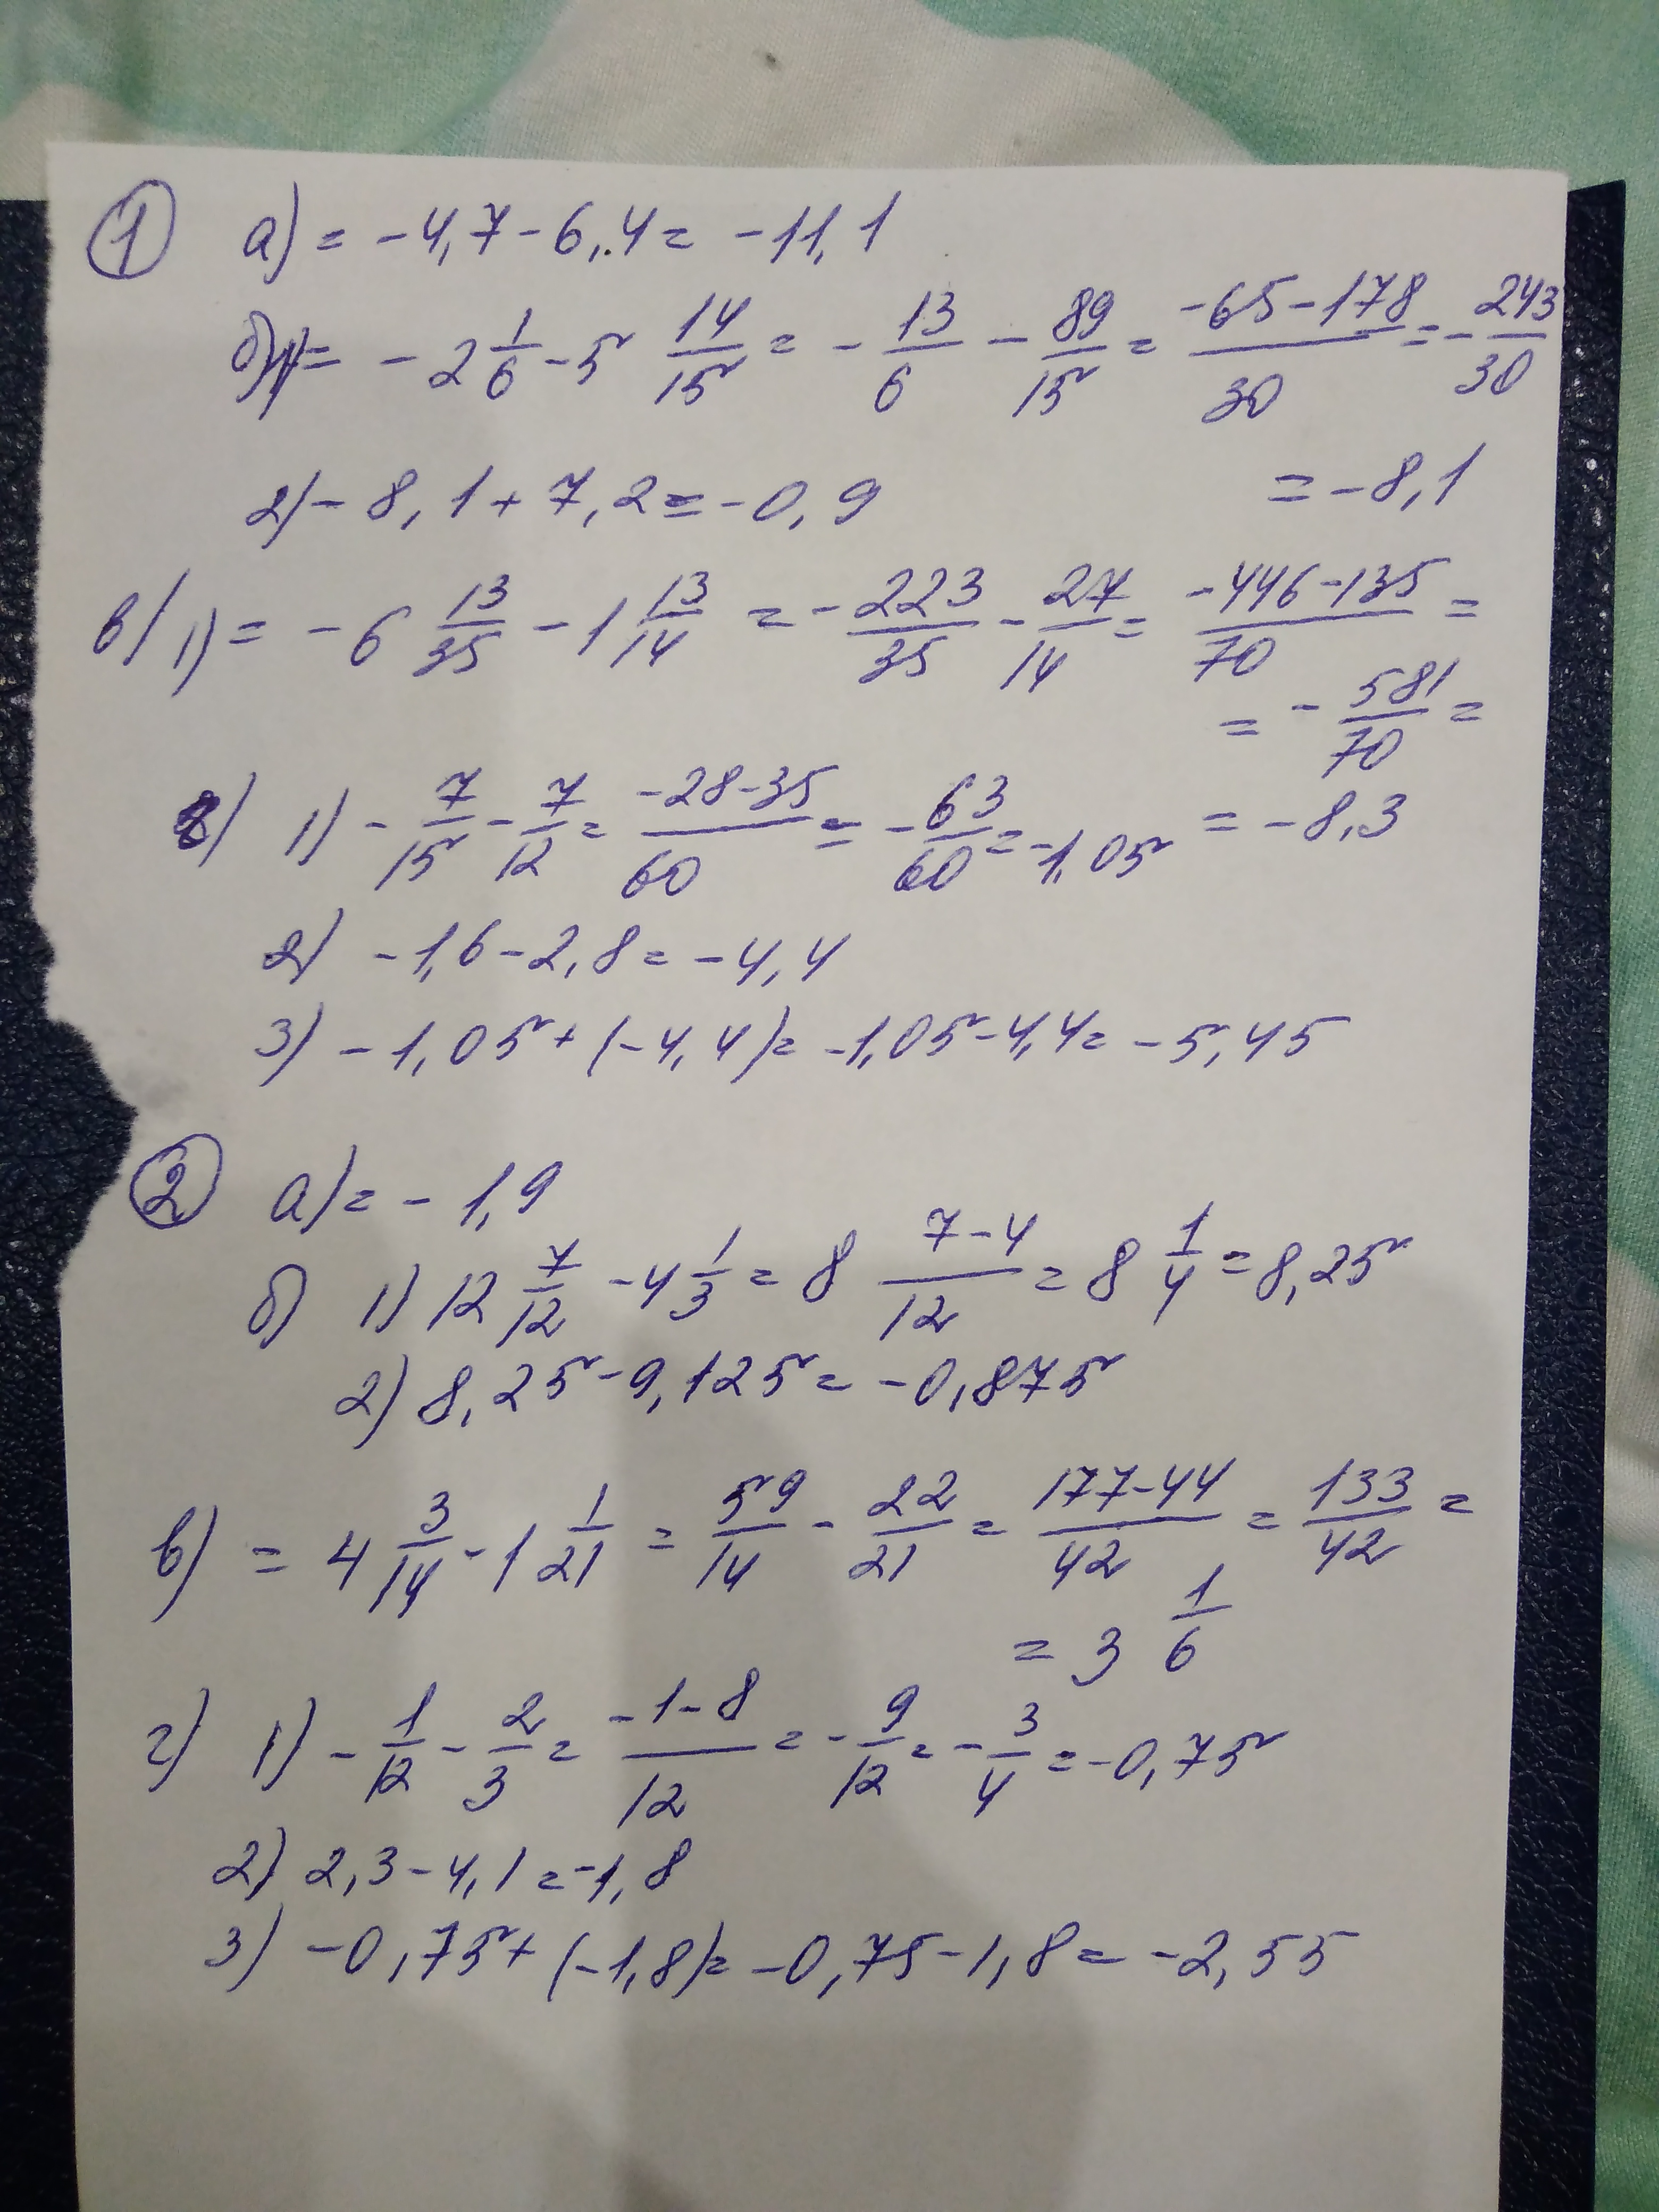 ① а) = -4,7-6,4 = -11,1
б) 1) = -2 1/6 - 5 14/15 = - 13/6 - 89/15 = (-65-178)/30 = - 243/30
= -8,1
2) -8,1+7,2 = -0,9
в) 1) = -6 13/35 - 1 13/14 = - 223/35 - 27/14 = (-446-135)/70 =
= - 581/70 =
= -8,3
г) 1) - 7/15 - 7/12 = (-28-35)/60 = - 63/60 = -1,05
2) -1,6-2,8 = -4,4
3) -1,05+(-4,4) = -1,05-4,4 = -5,45
② а) = -1,9
б) 1) 12 7/12 - 4 1/3 = 8 (7-4)/12 = 8 1/4 = 8,25
2) 8,25-9,125 = -0,875
в) = 4 3/14 - 1 1/21 = 59/14 - 22/21 = (177-44)/42 = 133/42 =
= 3 1/6
г) 1) - 1/12 - 2/3 = (-1-8)/12 = - 9/12 = - 3/4 = -0,75
2) 2,3-4,1 = -1,8
3) -0,75+(-1,8) = -0,75-1,8 = -2,55